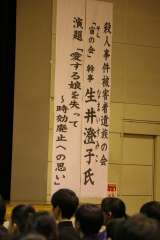 殺人事件被害者遺族の会
「宙の会」幹事 生井澄子氏
演題「愛する娘を失って
～時効廃止への思い」